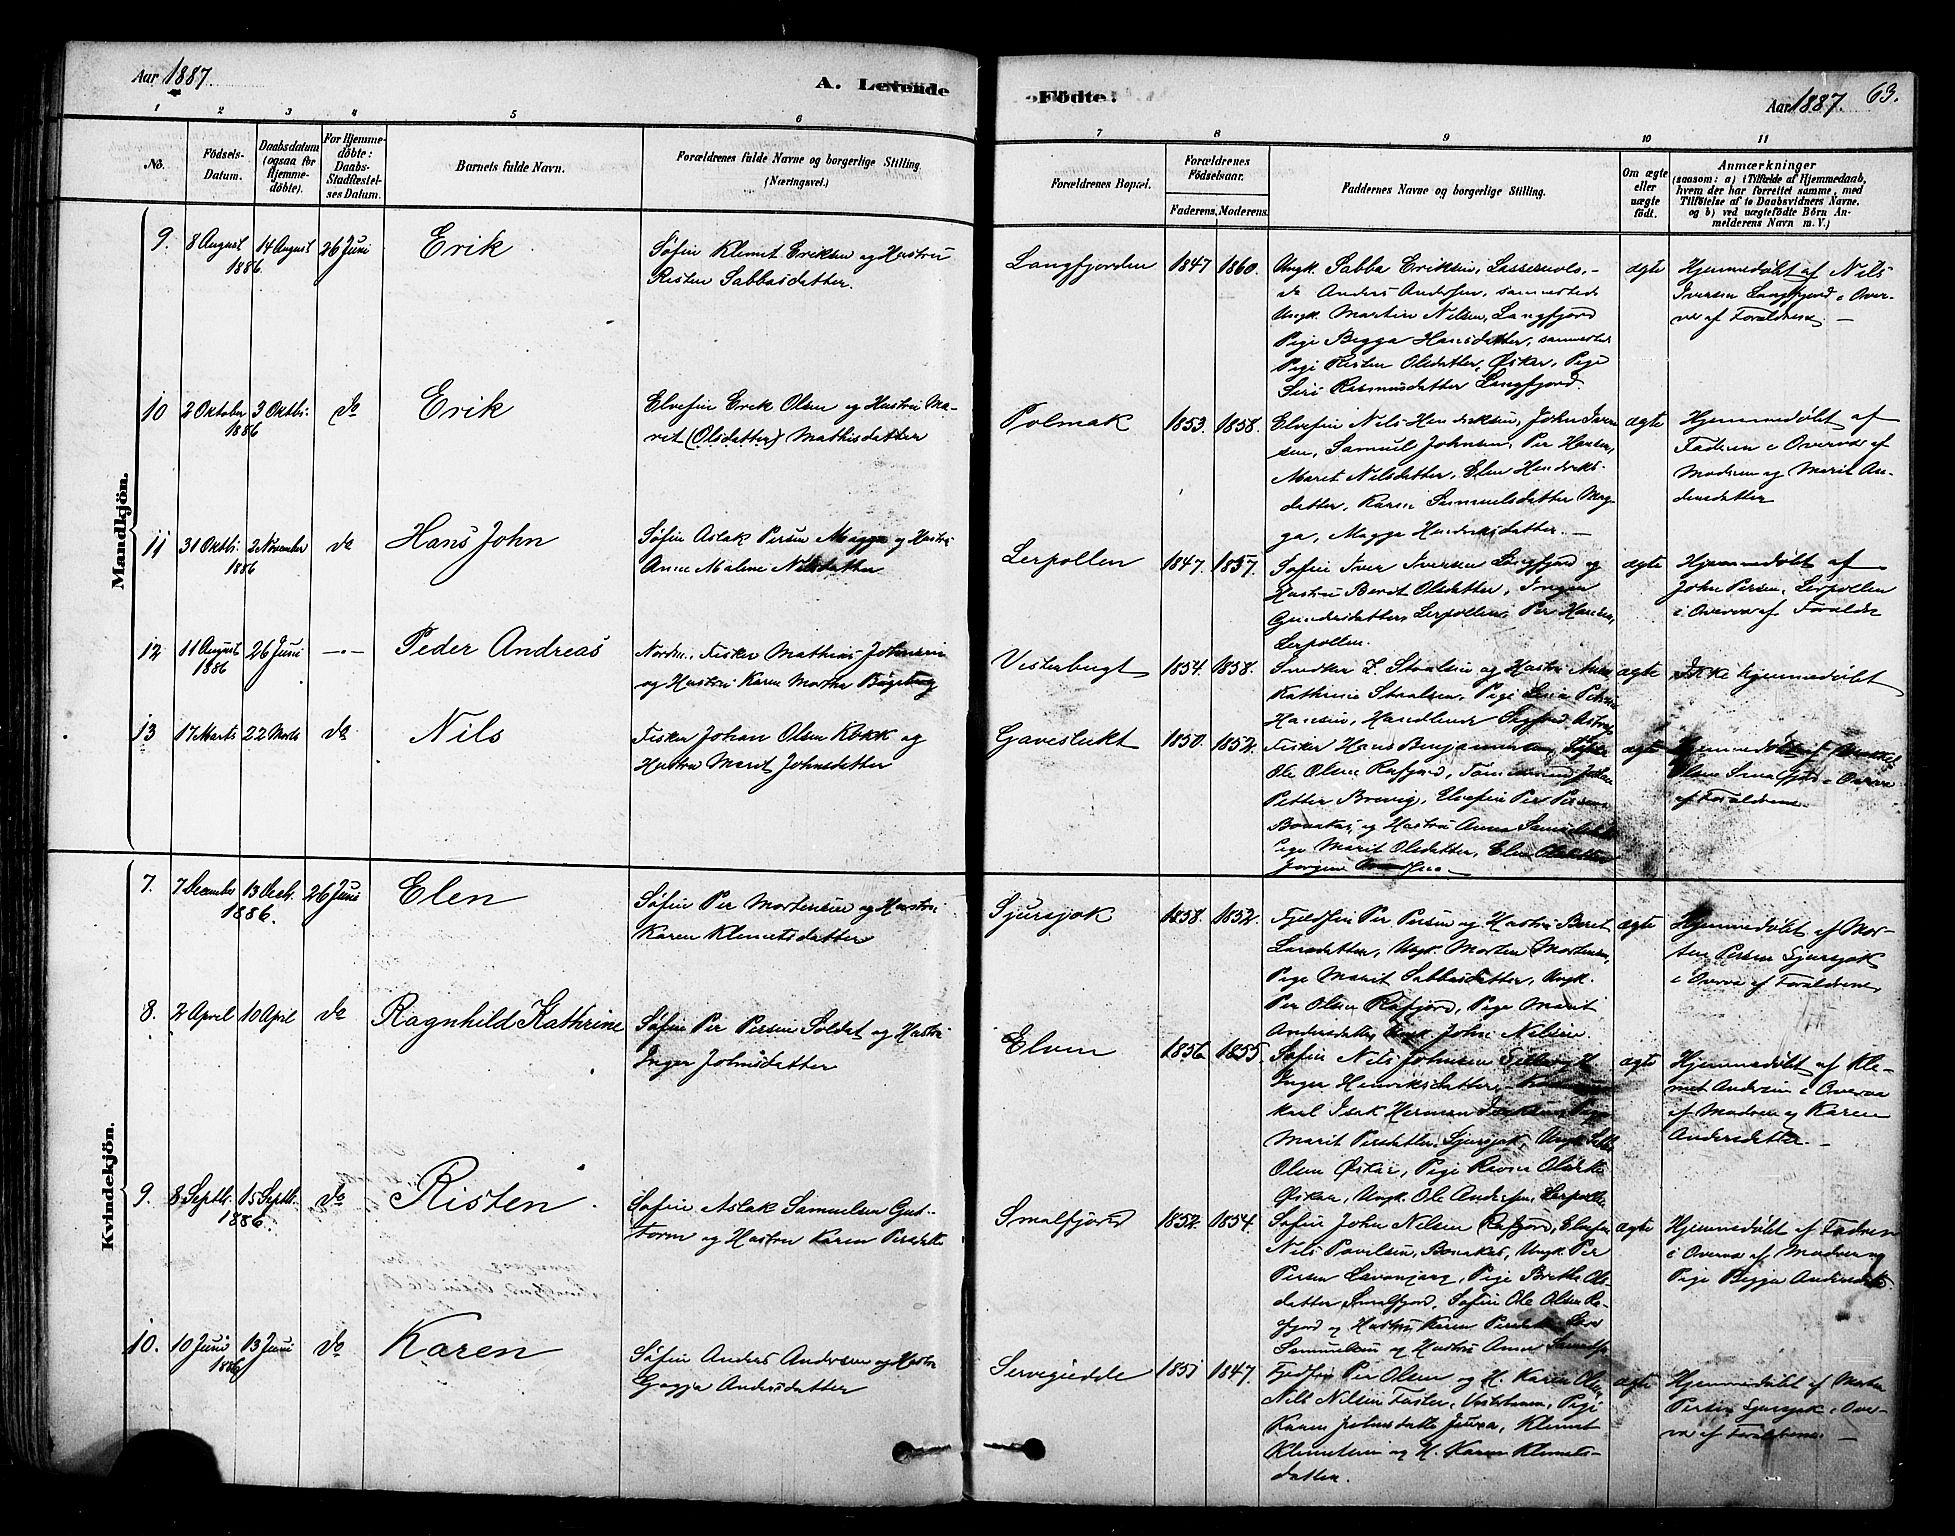 Aar 1887.
A. Levende
Födte.
Aar 1887. 63.
1 2 3 4 5 6
7 8 9 10 11
No.
Födsels-
Datum.
Daabsdatum
(ogsaa for
Hjemme-
döbte).
For Hjemme-
döbte:
Daabs-
Stadfæstel-
ses Datum.
Barnets fulde Navn.
Forældrenes fulde Navne og borgerlige Stilling
(Næringsvei.)
Forældrenes Bopæl.
Forældrenes
Födselsaar.
Faderens. Moderens.
Faddernes Navne og borgerlige Stilling.
Om ægte
eller
uægte
födt.
Anmærkninger
(saasom: a) i Tilfælde af Hjemmedaab,
hvem der har forrettet samme, med
Tilföielse af to Daabsvidners Navne,
og b) ved uægtefödte Börn An-
melderens Navn m. V.)
Mandkjön.
9. 8 August 14 August 26 Juni
1886.
Erik
Søfin Klemet Eriksen og Hustru
Risten Sabbasdatter.
Langfjorden 1847 1860.
Ungk. Sabba Eriksen,
do Anders Andersen, sammesteds
Ungk. Martin Nilsen, Langfjord
Pige Bigga Hansdatter, sammesteds
Pige Risten Olsdatter, Øskar, Pige
Siri Rasmusdatter Langfjord
ægte
Hjemmedøbt af Nils
Iversen Langfjord i Over-
vær af Forældrene. —
10 2 Oktober 3 Oktbr. do
1886
Erik
Elvefin Erik Olsen og Hustru Ma-
ret (Olsdatter) Mathisdatter
Polmak 1853. 1858.
Elvefin Nils Hendriksen, John Iver-
sen, Samuel Johnsen, Per Hansen,
Maret Nilsdatter, Elen Hendriks-
datter, Karen Samuelsdatter Mag-
ga, Magga Hendriksdatter. —
ægte
Hjemmedøbt af
Faderen i Overvær af
Modren og Marit An-
dersdatter
11 31 Oktbr. 2 November do
1886
Hans John
Søfin Aslak Persen Magga og Hustru
Anne Malene Nilsdatter
Lerpollen 1847. 1857.
Søfin Iver Iversen Langfjord og
Hustru Berit Olsdatter, Inger
Gundersdatter Lerpollen, Per Hansen,
Lerpollen.
ægte
Hjemmedøbt af
John Persen, Lerpollen
i Overvær af Foreldre
12 11 August 26 Juni —.—
1886
Peder Andreas
Fisker Mathias Johnsen
og Hustru Karen Marthe
Vesterbugt 1854. 1858.
Snedker og Hustru Anne
Kathrine Pige
Hansen, Handlende
ægte
Ikke hjemmedøbt
13 17 Marts 22 Marts do
Nils
Fisker Johan Olsen Kokk og
Hustru Marit Johnsdatter
Gaveslukt 1850. 1852.
Fisker Hans Benjaminsen, Søfin
Ole Olsen Rafjord,
Petter Brevig, Elvefin Per Persen
Bonakas, og Hustru Anna
Pige Marit Olsdatter, Elen Olsdatter
ægte
Hjemmedøbt af
Olsen Smalfjord i Overvær
af Forældrene.
Kvindekjön.
7. 7 December 13 Decb. 26 Juni
1886.
Elen
Søfin Per Mortensen og Hustru
Karen Klemetsdatter
Sjursjok 1858. 1852.
Fjeldfin Per Persen og Hustru Beret
Larsdatter, Ungk. Morten Mortensen,
Pige Marit Sabbasdatter, Ungk.
Per Olsen Rafjord, Pige Marit
Andersdatter, Ungk. John Nilsen.
ægte
Hjemmedøbt af Mor-
ten Persen Sjursjok
i Overvær af Forældrene,
8. 2 April 10 April do
Ragnhild Kathrine
Søfin Per Persen Soldat og Hustru
Inger Johnsdatter
Elven 1856. 1855.
Søfin Nils Johnsen
Inger Henriksdatter,
karl Isak Herman Isaksen, Pige
Marit Persdatter, Sjursjok, Ungk.
Olsen Øskar, Pige Olsdatter
Øskar, Ungk. Ole Andersen, Lerpollen
ægte
Hjemmedøbt af Kle-
met Andersen i Overvær
af Modren og Karen
Andersdatter. —
9. 8 Septb. 15 Septb. do
1886.
Risten
Søfin Aslak Samuelsen Gut-
torm og Hustru Karen Persdatter
Smalfjord 1852. 1854.
Søfin John Nilsen Rafjord, Elvefin
Nils Povelsen, Bonakas, Ungk. Per
Persen Lavonjarg, Pige Berthe Ols-
datter, Smalfjord, Søfin Ole Olsen Ra-
fjord og Hustru Karen Persdatter
Samuelsen og Hustru Anne
ægte
Hjemmedøbt af Fadren
i Overvær af Modren og
Pige Bigga Andersdatter
10. 10 Juni 13 Juni do
1886
Karen
Søfin Anders Andersen og Hustru
Gagga Andersdatter
Servegiedde 1851 1847.
Fjeldfin Per Olsen og H. Karen Olsen
Nils Nilsen Vesterhavn, Pige
Karen Johnsdatter Klemet
Klemetsen og H. Karen Klemets-
datter.
ægte
Hjemmedøbt af Morten
Persen Sjursjok i Over-
vær af Forældrene. —